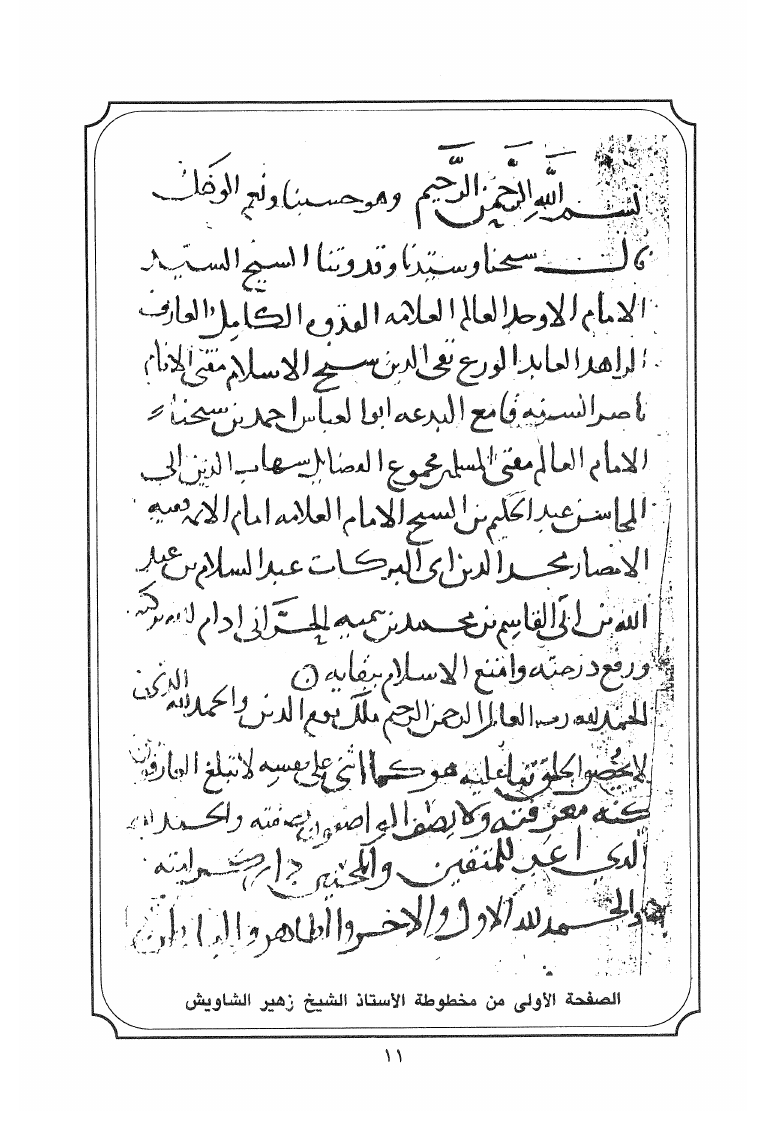 بسم الله الرحمن الرحيم وهو حسبنا ونعم الوكيل
قال شيخنا وسيدنا وقدوتنا الشيخ السيد
الامام الاوحد العالم العلامه القدوه الكامل العارف
الزاهد العابد الورع تقي الدين شيخ الاسلام مفتي الانام
ناصر السنه قامع البدعه ابو العباس احمد بن شيخنا
الامام العالم مفتي المسلمين مجموع الفضايل شهاب الدين ابي
المحاسن عبد الحليم بن الشيخ الامام العلامه امام الائمه فقيه
الامصار مجد الدين ابي البركات عبد السلام بن عبد
الله بن ابي القاسم بن محمد بن تيميه الحراني ادام الله بركته
ورفع درجته وامتع الاسلام ببقايه
الحمد لله رب العالمين الرحمن الرحيم ملك يوم الدين والحمد لله الذي
لا يحصي الخلق ثنا عليه هو كما اثنى على نفسه لا تبلغ العارفون
كنه معرفته ولا يصف الواصفون صفته والحمد لله
الذي اعد للمتقين دار كرامته
والحمد لله الاول والاخر والظاهر والباطن
الصفحة الأولى من مخطوطة الأستاذ الشيخ زهير الشاويش
١١